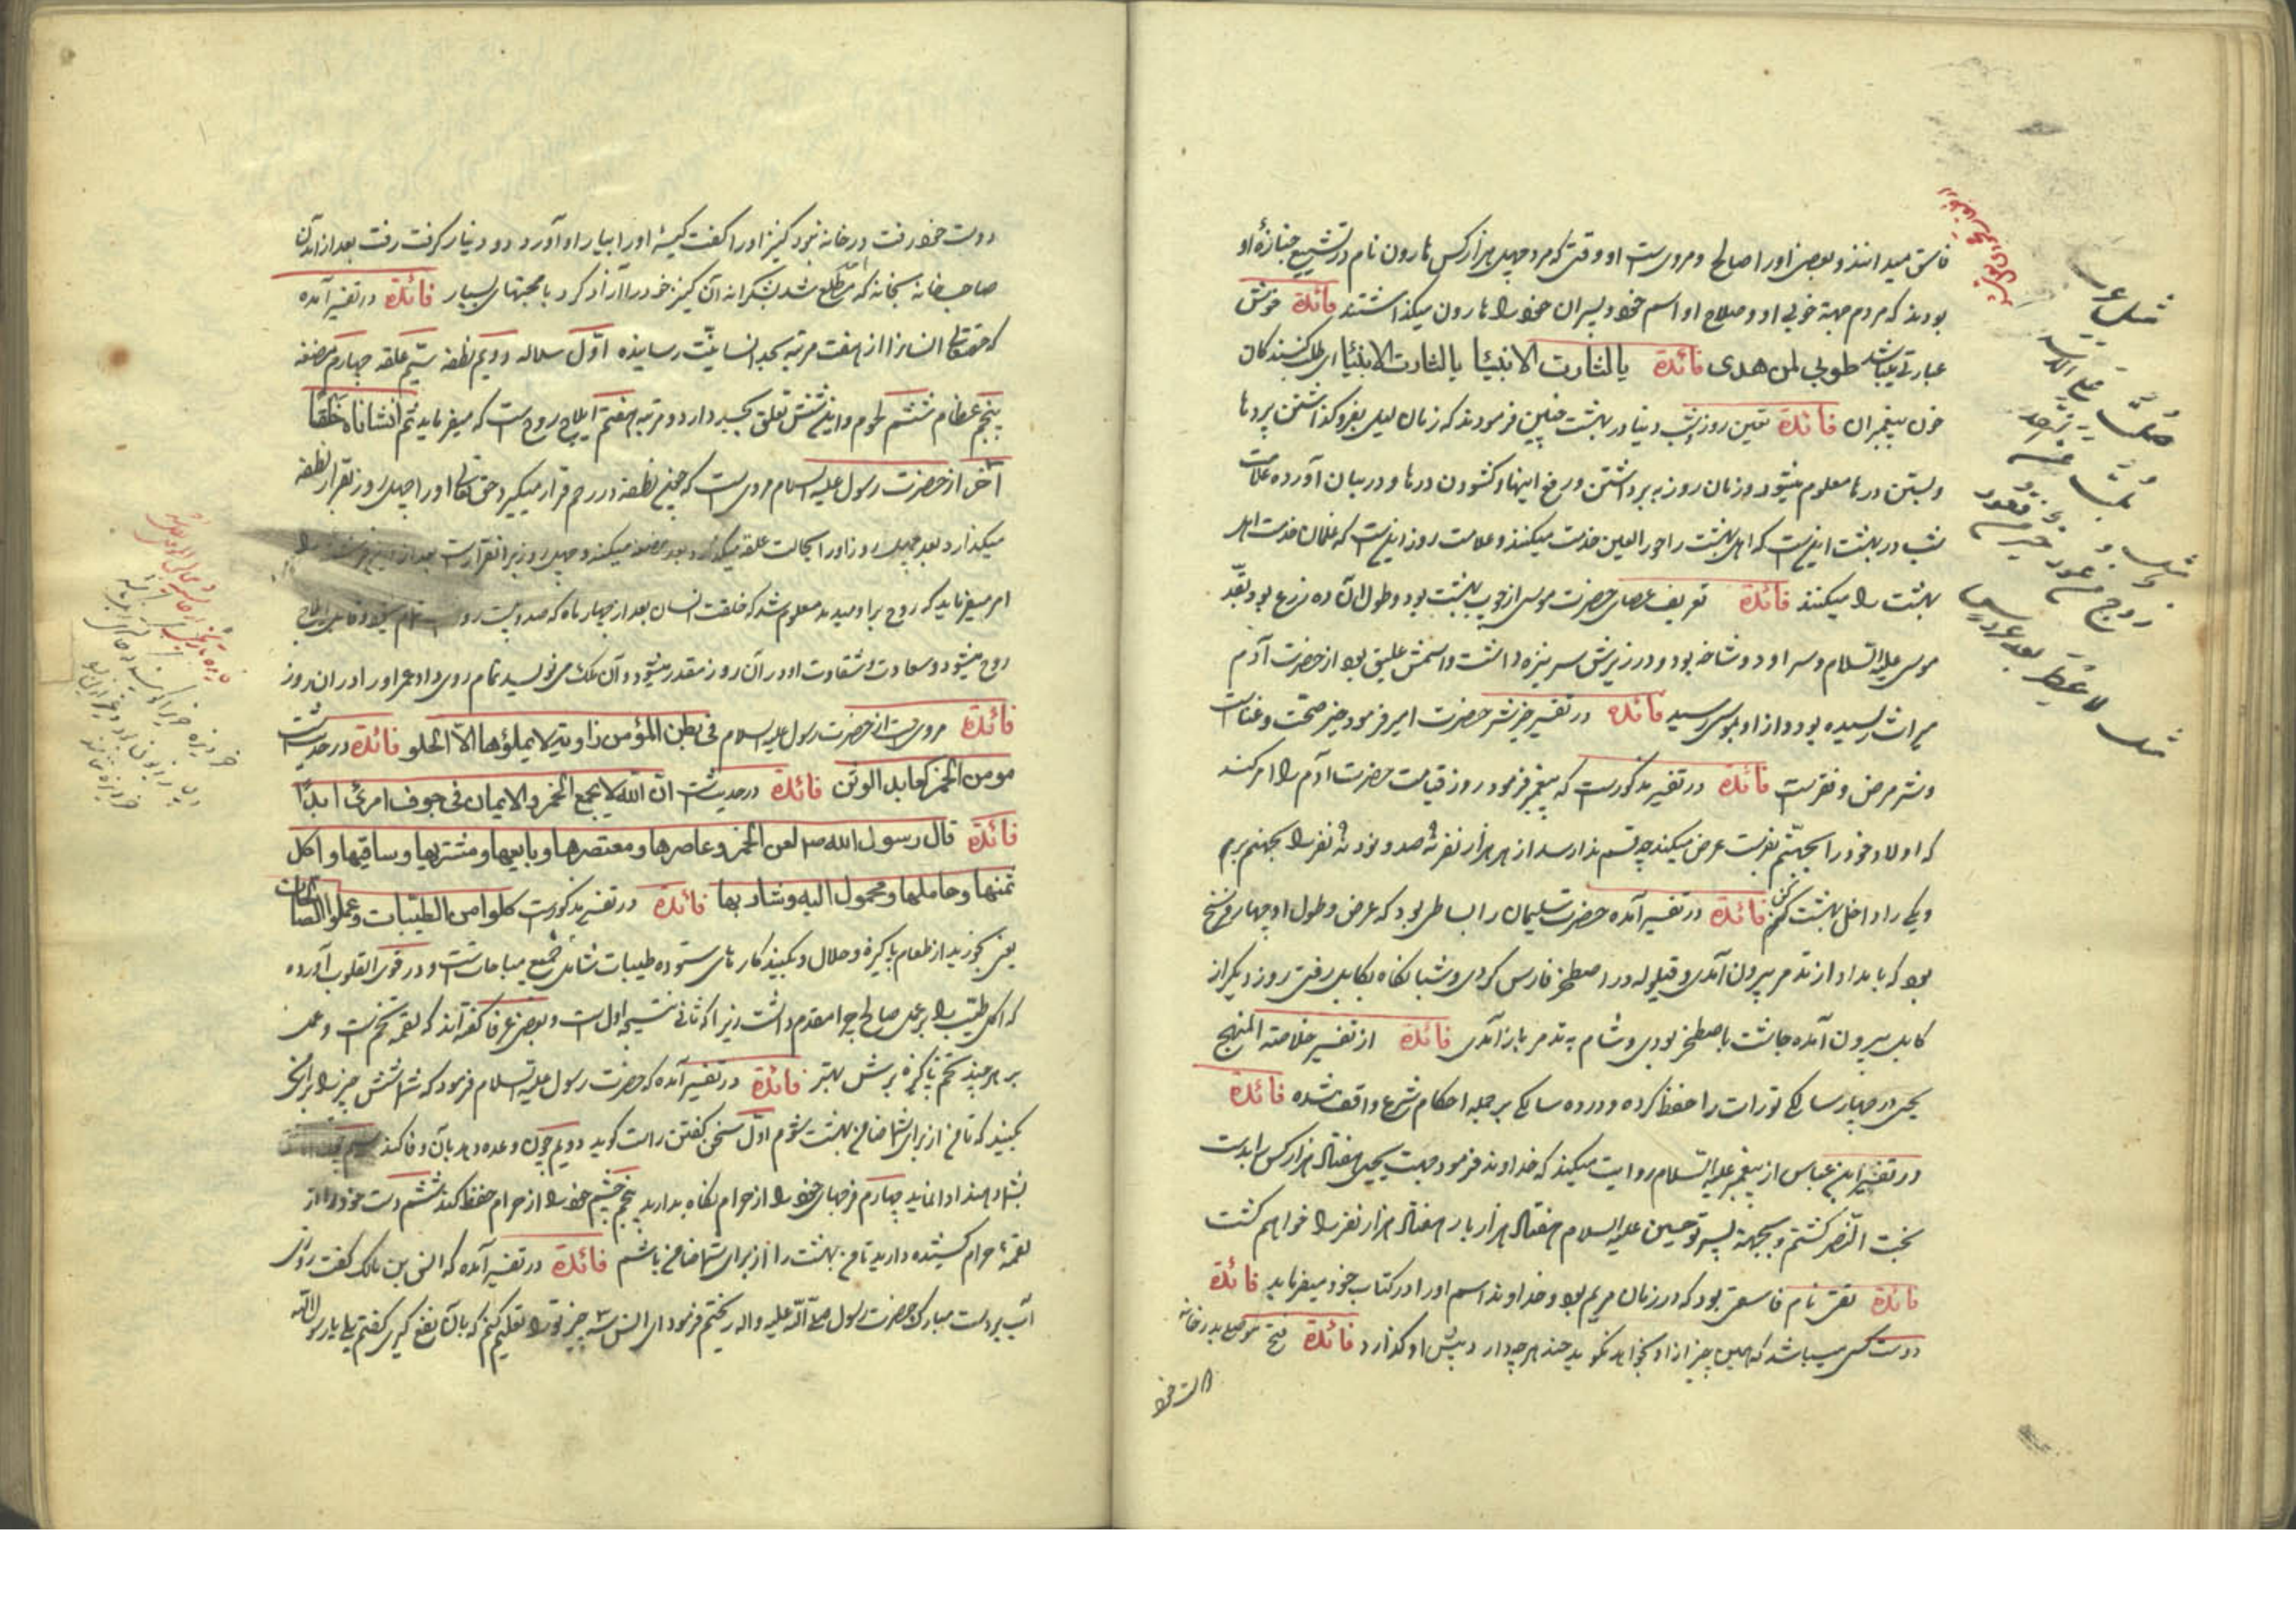 فاسق میدانند و بعضی اورا صالح و مرویست او وقتی که مرد چهل هزار کس هارون نام در تشییع جنازۀ او
بودند که مردم جهة خوبی او و صلاح او اسم خود و پسران خود را هارون میکذاشتند فائدة خوش
عبارتی باشد طوبی لمن هدی فائدة یالثارت الانبیا یالثارت الانبیا ای طلب کنندکان
خون پیغمبران فائدة تعیین روز و شب دنیا در بهشت چنین فرمودند که زمان لیل بفرو کذاشتن پردها
و بستن درها معلوم میشود و زمان روز به برداشتن و رفع اینها و کشودن درها و در بیان آورده علامت
شب در بهشت اینست که اهل بهشت را حور العین خدمت میکنند و علامت روز اینست که غلمان خدمت اهل
بهشت را میکنند فائدة تعریف عصای حضرت موسی از چوب بهشت بود و طول آن ده زرع بود بقد
موسی علیه السلام و سر او دو شاخه بود و در زیرش سر نیزه داشت و اسمش علیق بود از حضرت آدم
میراث رسیده بود و از او بموسی رسید فائدة در تفسیر خیر و شر حضرت امیر فرمود خیر صحت و غناست
و شر مرض و فقرست فائدة در تفسیر مذکورست که پیغمبر فرمود روز قیامت حضرت آدم را امر کند
که اولاد خود را بجهنم بفرست عرض میکند چه قسم ندا رسد از هر هزار نفر نه صد و نود نه نفر را بجهنم برم
و یکی را داخل بهشت کنم فائدة در تفسیر آمده حضرت سلیمان را بساطی بود که عرض و طول او چهار فرسخ
بود که بامداد از تدمر بیرون آمدی و قیلوله در اصطخر فارس کردی و شبانکاه بکابل رفتی روز دیکر از
کابل بیرون آمده چاشت باصطخر بودی و شام به تدمر باز آمدی فائدة از تفسیر خلاصة المنهج
یحیی در چهار سالکی تورات را حفظ کرده و در ده سالکی بر جمله احکام شرع واقف شده فائدة
در تفسیر ابن عباس از پیغمبر علیه السلام روایت میکند که خداوند فرمود جهت یحیی هفتاد هزار کس را بدست
بخت النصر کشتم و بجهة پسر تو حسین علیه السلام هفتاد هزار بار هفتاد هزار نفر را خواهم کشت
فائدة تقی نام فاسقی بود که در زمان مریم بود و خداوند اسم او را در کتاب خود میفرماید فائدة
دوست کسی میباشد که همین چیز از او بخواهد نکوید چند هر چه دارد پیش او کذارد فائدة فتح موصلی بدر خانه
دوست خود رفت در خانه نبود کنیز اورا کفت کیسۀ اورا بیار او آورد دو دینار کرفت رفت بعد از آمدن
صاحب خانه بخانه که مطلع شد بشکرانه آن کنیز خود را آزاد کرد با محبتهای بسیار فائدة در تفسیر آمده
که حقتعالی انسانرا از هفت مرتبه بحد انسانیت رسانیده اول سلاله دویم نطفه سیم علقه چهارم مضغه
پنجم عظام ششم لحوم و این شش تعلق بجسد دارد و مرتبه هفتم ایلاج روح است که میفرماید ثم انشاناه خلقا
آخر از حضرت رسول علیه السلام مرویست که چون نطفه در رحم قرار میکیرد حق تعالی اورا چهل روز بقرار نطفه
میکذارد بعد چهل روز اورا بحالت علقه میکذارد بعد مضغه میکند و چهل روز بر انقرارست بعد از این فرشته را
امر میفرماید که روح براو میدمد معلوم شد که خلقت انسان بعد از چهار ماه که صد و بیست روز تمام میشود قابل ایلاج
روح میشود و سعادت و شقاوت او در آن روز مقدر میشود و آن ملک می نویسد تمام روی داد عمر اورا در ان روز
فائدة مرویست از حضرت رسول علیه السلام فی بطن المؤمن زاویة لا یملؤها الا الحلو فائدة در حدیث است
مومن الخمر کعابد الوثن فائدة در حدیث است ان الله لا یجمع الخمر و الایمان فی جوف امرئ ابدا
فائدة قال رسول الله ص لعن الخمر و عاصرها و معتصرها و بایعها و مشتریها و ساقیها و اکل
ثمنها و حاملها و محمول الیه و شاربها فائدة در تفسیر مذکورست کلوا من الطیبات و عملوا الصالحات
یعنی بخورید از طعام پاکیزه و حلال و بکنید کارهای ستوده طیبات شامل جمیع مباحات است و در قوت القلوب آورده
که اکل طیب را بر عمل صالح چرا مقدم داشت زیرا که ثانی نتیجه اول است و بعضی عرفا کفته اند که لقمه تخم است و عمل
بر هر چند تخم پاکیزه برش بهتر فائدة در تفسیر آمده که حضرت رسول علیه السلام فرمود که شما شش چیز را برای من
بکنید که تا من از برای شما ضامن بهشت شوم اول سخن کفتن راست کوید دویم چون وعده دهد بآن وفا کند سیم
بشما دهند ادا نماید چهارم فرجهای خود را از حرام نکاه بدارید پنجم چشم خود را از حرام حفظ کند ششم دست خود را از
لقمۀ حرام کشیده دارید تا من بهشت را از برای شما ضامن باشم فائدة در تفسیر آمده که انس بن مالک کفت روزی
آب بردست مبارک حضرت رسول صلی الله علیه واله ریختم فرمود ای انس سه چیز تو را تعلیم کنم که بآن نفع کیری کفتم بلی یا رسول الله